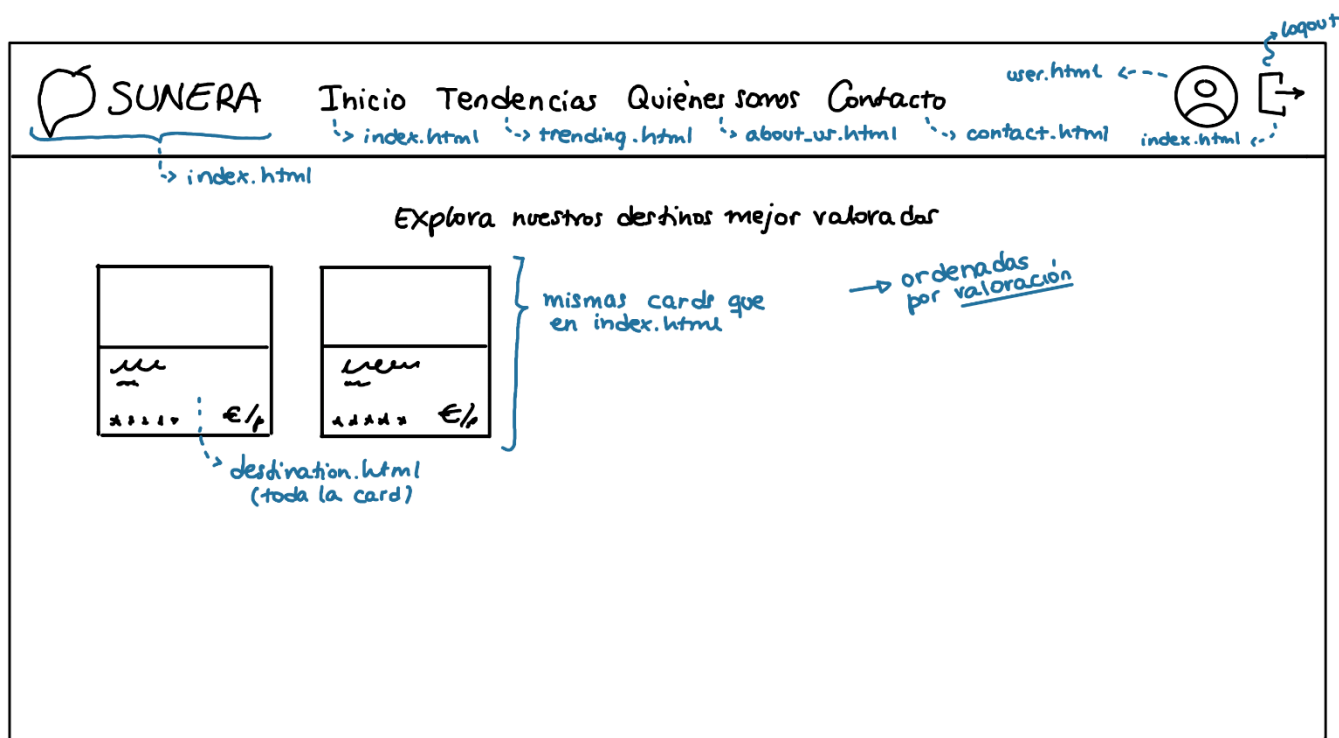 logout
SUNERA Inicio Tendencias Quiénes somos Contacto
user.html
index.html trending.html about_us.html contact.html index.html
index.html
Explora nuestros destinos mejor valorados
mismas cards que
en index.html
ordenadas
por valoración
€/p €/p
destination.html
(toda la card)